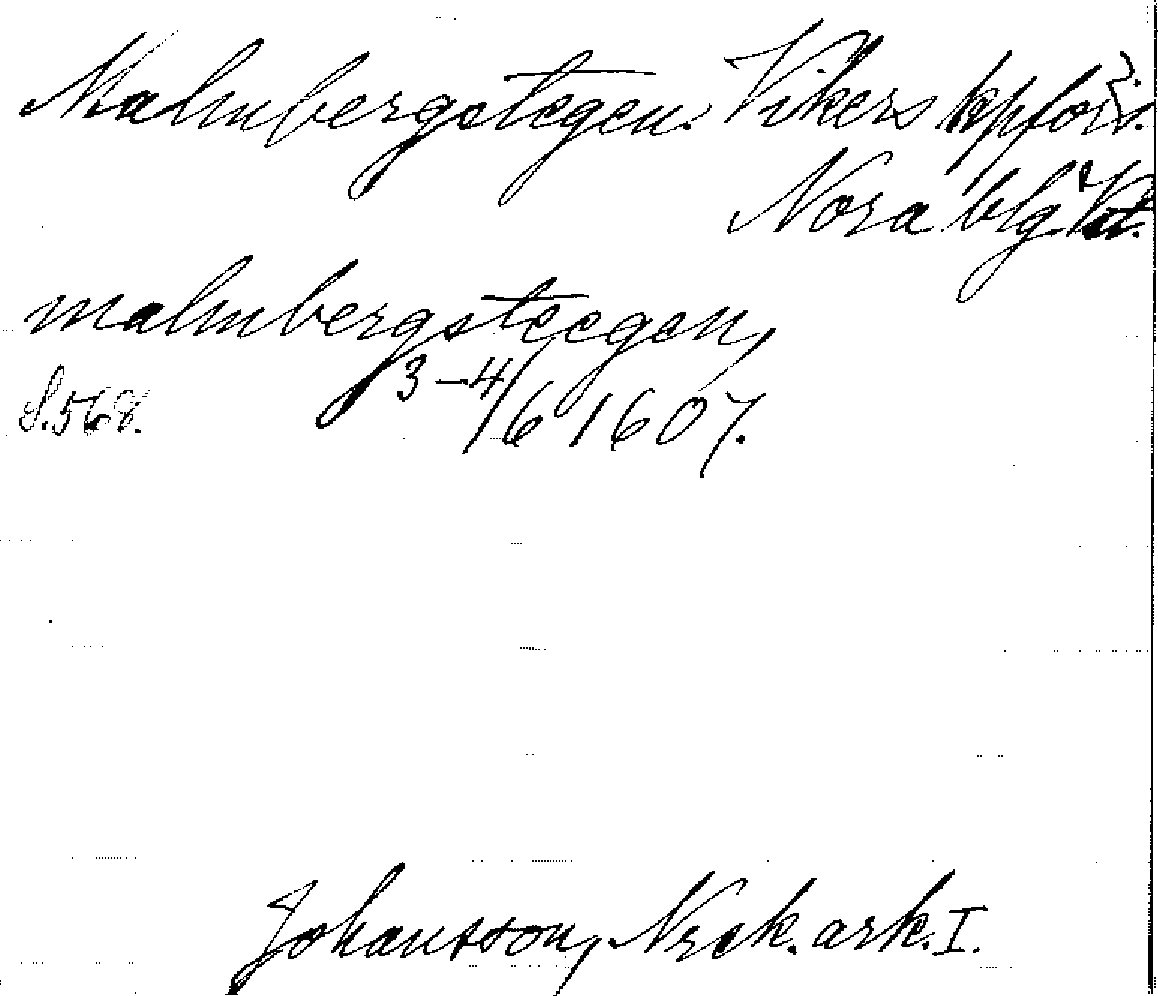 Malmbergstegen. Vikers kpförs.
Nora blg. Vstm.
malmbergsteegen,
S. 568. 3–4/6 1607.
Johansson, Nrck. ark. I.